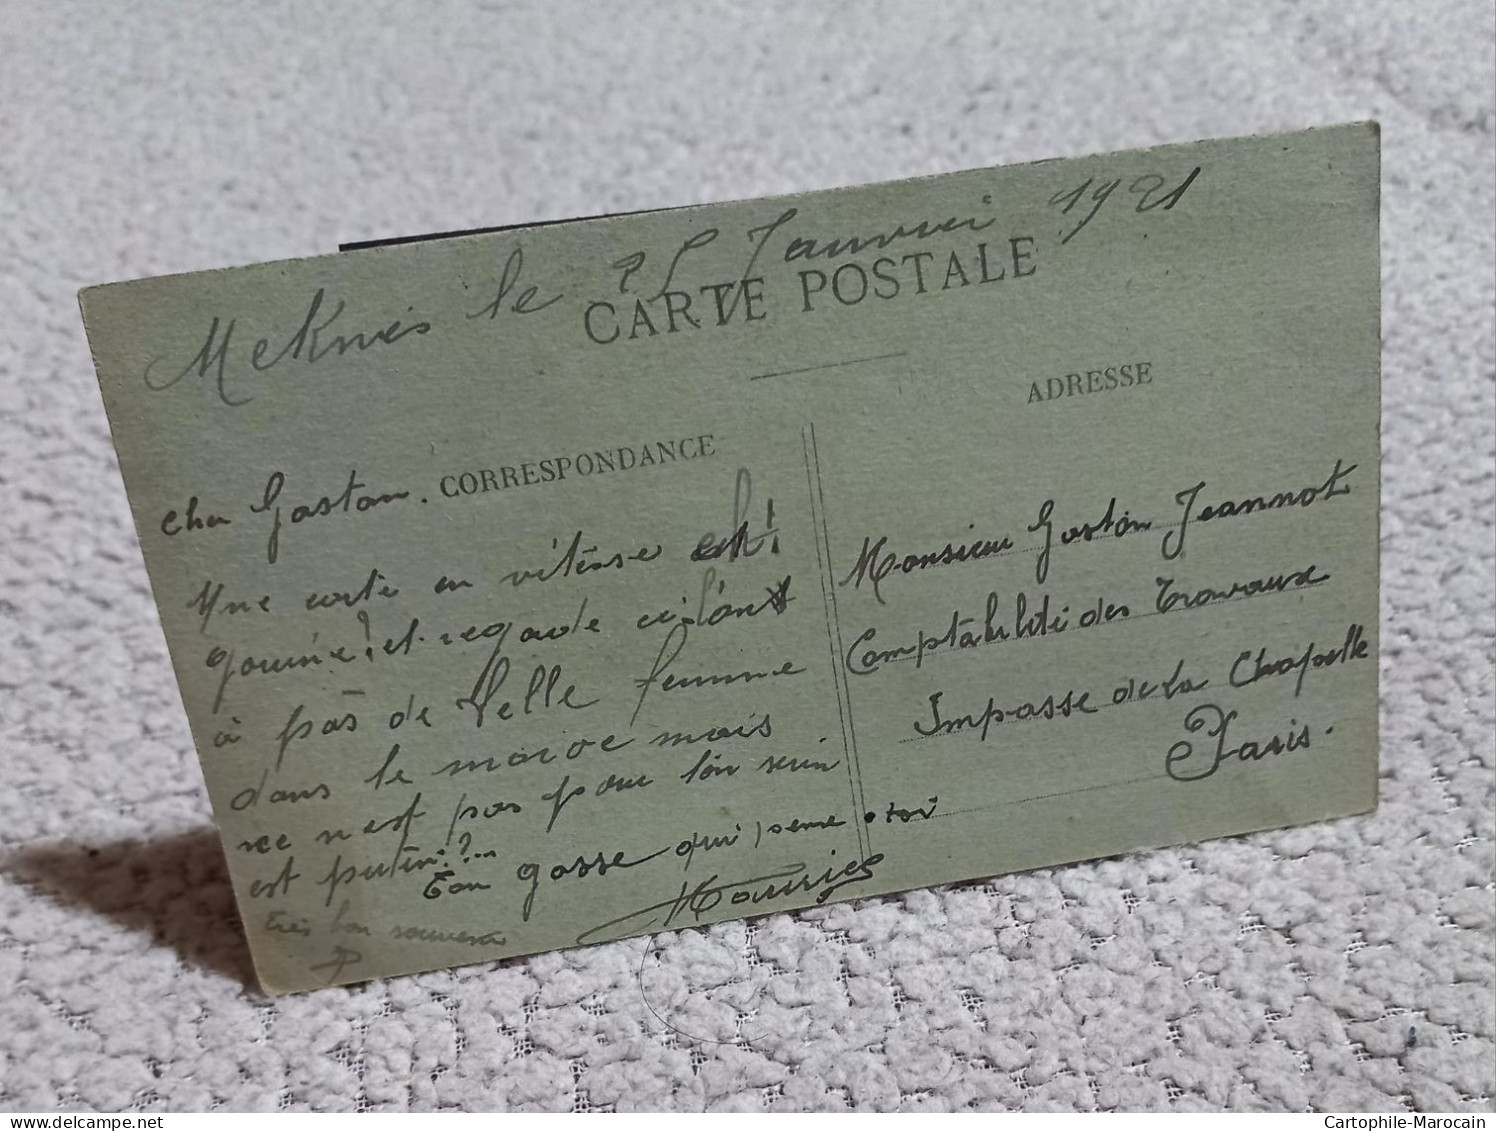 Meknès le 25 Janvier 1921
CARTE POSTALE
CORRESPONDANCE
ADRESSE
Cher Gaston.
Une carte en vitesse eh!
et regarde
à pas de belle femme
dans le maroc mais
ce n'est pas pour ton serin
est putin?...
Ton gosse qui pense a toi
Maurice
Très bon souvenir
Monsieur Gaston Jeannot
Comptabilité des Travaux
Impasse de la Chapelle
Paris.
delcampe.net
Cartophile-Marocain